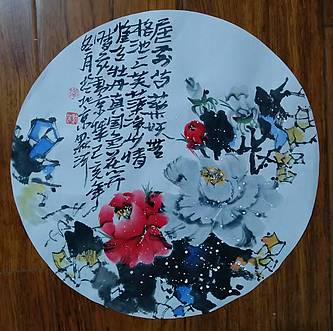 庭前芍药妖無
格池上芙蕖净少情
唯有牡丹真國色花开
時节动京城己亥年
月於北京